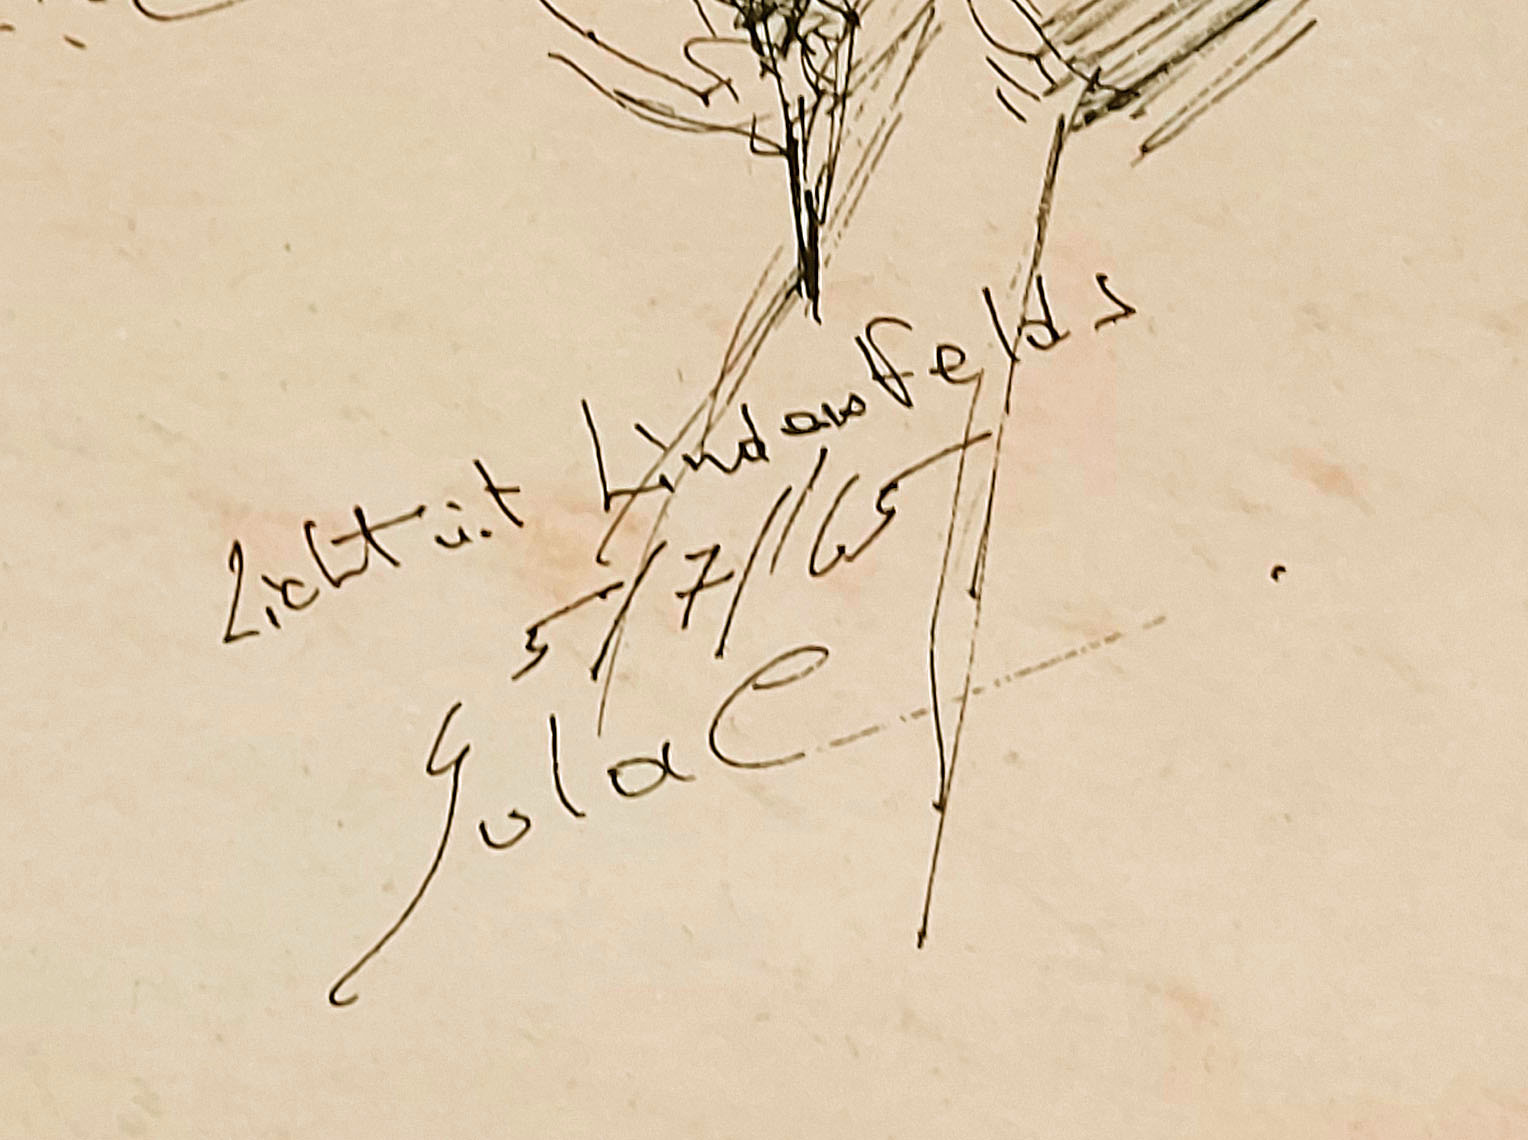 Zicht uit Lindenfelds
5/7//65
Gulac